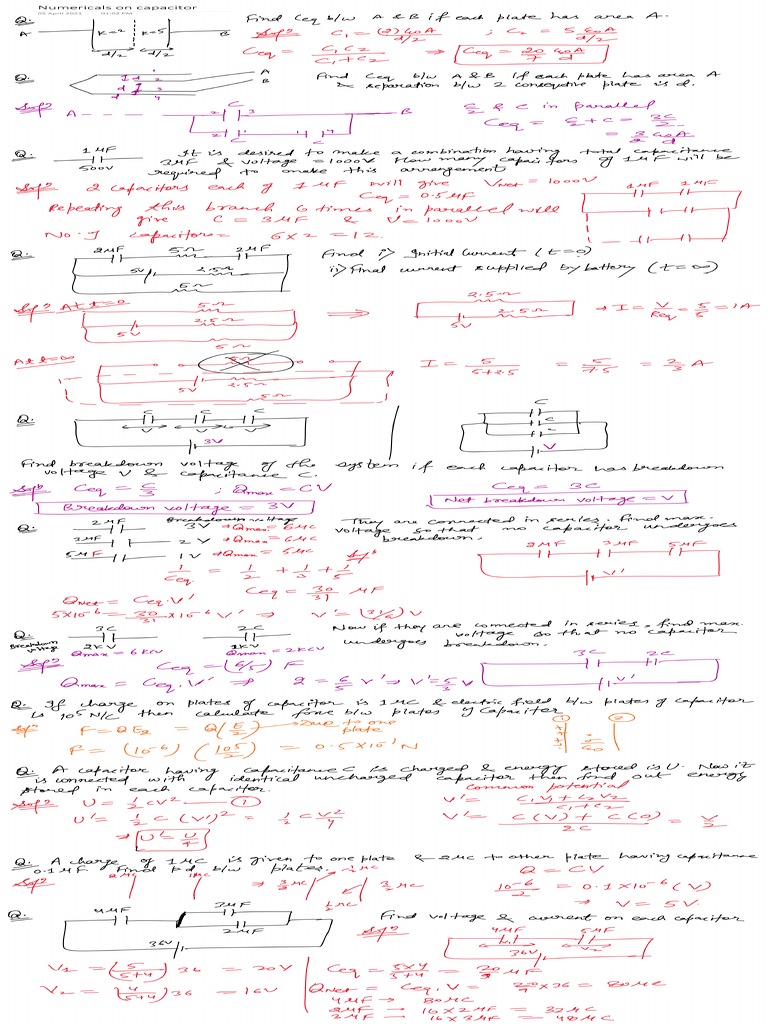 Numericals on capacitor
05 April 2021 01:02 PM
Q. Find Ceq b/w A & B if each plate has area A.
A K=2 K=5 B
d/2 d/2
C1 = (2)ε0A / d/2 ; C2 = 5 ε0A / d/2
Ceq = C1C2 / C1+C2 ⇒ Ceq = 20/7 ε0A/d
Q. Find Ceq b/w A & B if each plate has area A
& separation b/w 2 consecutive plate is d.
d 1 2 3 4 A B
Solⁿ A 2 C 3 B
C/2 & C in parallel
Ceq = C/2 + C = 3C/2
= 3/2 ε0A/d
Q. 1μF It is desired to make a combination having total capacitance
500V 3μF & voltage = 1000V How many capacitors of 1μF will be
required to make this arrangement
Solⁿ 2 capacitors each of 1μF will give Vnet = 1000V
Ceq = 0.5μF
1μF 1μF
Repeating this branch 6 times in parallel will
give C = 3μF & V = 1000V
No. of capacitors = 6×2 = 12.
Q. 2μF 5Ω 2μF Find i) Initial current (t=0)
5V 2.5Ω ii) Final current supplied by battery (t=∞)
5Ω
Solⁿ At t=0 5Ω 2.5Ω
2.5Ω ⇒ 2.5Ω → I = V/Req = 5/5 = 1A
5V 5V
5Ω
At t=∞ 5Ω
5V 2.5Ω I = 5/5+2.5 = 5/7.5 = 2/3 A
5Ω
Q. C C C C
V V V C
3V V
Find breakdown voltage of the system if each capacitor has breakdown
voltage V & capacitance C.
Solⁿ Ceq = C/3 ; Qmax = CV Ceq = 3C
Breakdown voltage = 3V Net breakdown voltage = V
Q. Breakdown voltage They are connected in series. Find max.
2μF 3V → Qmax = 6μC voltage so that no capacitor undergoes
3μF 2V → Qmax = 6μC breakdown.
5μF 1V → Qmax = 5μC Solⁿ 2μF 3μF 5μF
1/Ceq = 1/2 + 1/3 + 1/5 V'
Ceq = 30/31 μF
Qnet = Ceq.V'
5×10⁻⁶ = 30/31 ×10⁻⁶ V' ⇒ V' = (31/6) V
Q. 3C 2C Now if they are connected in series, find max.
Breakdown voltage 2KV 1KV voltage so that no capacitor
undergoes breakdown.
Qmax = 6KCV Qmax = 2KCV
Solⁿ Ceq = (6/5) F 3C 2C
Qmax = Ceq.V' ⇒ 2 = 6/5 V' ⇒ V' = 5/3 V V'
Q. If charge on plates of capacitor is 1μC & electric field b/w plates of capacitor
is 10⁵ N/C then calculate force b/w plates of capacitor
Solⁿ F = QE2 = Q(E/2) → Due to one plate
F = (10⁻⁶) (10⁵/2) = 0.5×10⁻¹ N
Q. A capacitor having capacitance C is charged & energy stored is U. Now it
is connected with identical uncharged capacitor then find out energy
stored in each capacitor.
Common potential
Solⁿ U = 1/2 CV² ① V' = C1V1 + C2V2 / C1 + C2
U' = 1/2 C (V')² = 1/2 C V²/4 V' = C(V) + C(0) / 2C = V/2
→ U' = U/4
Q. A charge of 1μC is given to one plate & 2μC to other plate having capacitance
0.1μF. Find pd b/w plates.
Solⁿ 2μC 1μC ⇒ 3/2μC 1/2μC 3/2μC
Q = CV
10⁻⁶/2 = 0.1×10⁻⁶ (V)
⇒ V = 5V
Q. 4μF 3μF 2μF 36V Find voltage & current on each capacitor
Solⁿ 4μF 5μF
V1 V2
36V
V1 = (5/5+4) 36 = 20V Ceq = 5×4/5+4 = 20/9 μF
V2 = (4/5+4) 36 = 16V Qnet = Ceq.V = 20/9 ×36 = 80μC
4μF → 80μC
2μF → 16×2μF = 32μC
3μF → 16×3μF = 48μC